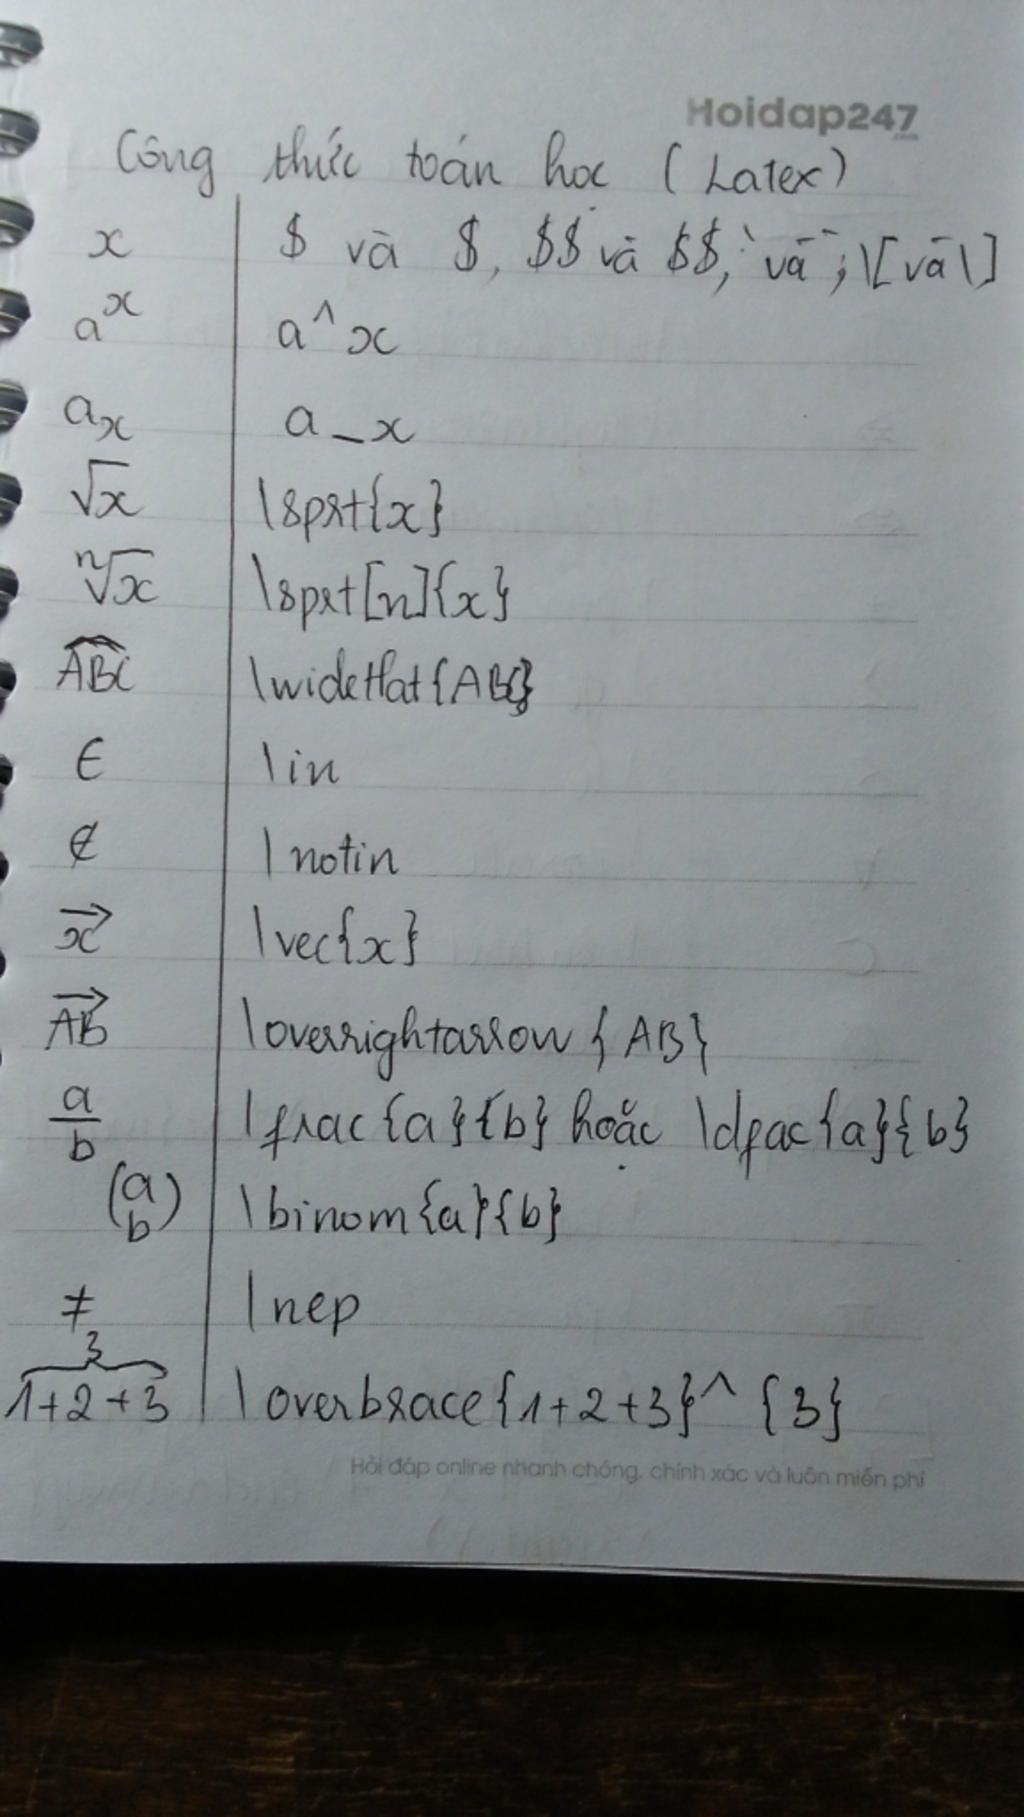 Hoidap247
.com
Công thức toán học (Latex)
x $ và $, $$ và $$, ` và `; \[ và \]
a^x a^x
a_x a_x
√x \sqrt{x}
ⁿ√x \sqrt[n]{x}
ABC \wideHat{ABC}
∈ \in
∉ \notin
x \vec{x}
AB \overrightarrow {AB}
a/b \frac{a}{b} hoặc \dfac{a}{b}
(a b) \binom{a}{b}
≠ \neq
3
1+2+3 \overbrace{1+2+3}^{3}
Hỏi đáp online nhanh chóng, chính xác và luôn miễn phí